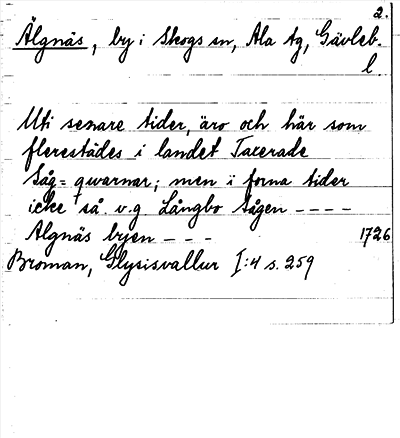 2.
Älgnäs, by i Skogs sn, Ala tg, Gävleb.
l.
Uti senare tider, äro och här som
flerestädes i landet Taxerade
Såg= qwarnar; men i forna tider
icke så. v.g Långbo Sågen ----
Algnäs byen --- 1726
Broman, Glysisvallur I:4 s. 259